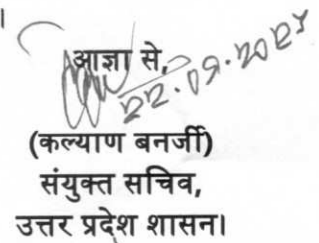 ।
आज्ञा से,
22.09.2025
(कल्याण बनर्जी)
संयुक्त सचिव,
उत्तर प्रदेश शासन।